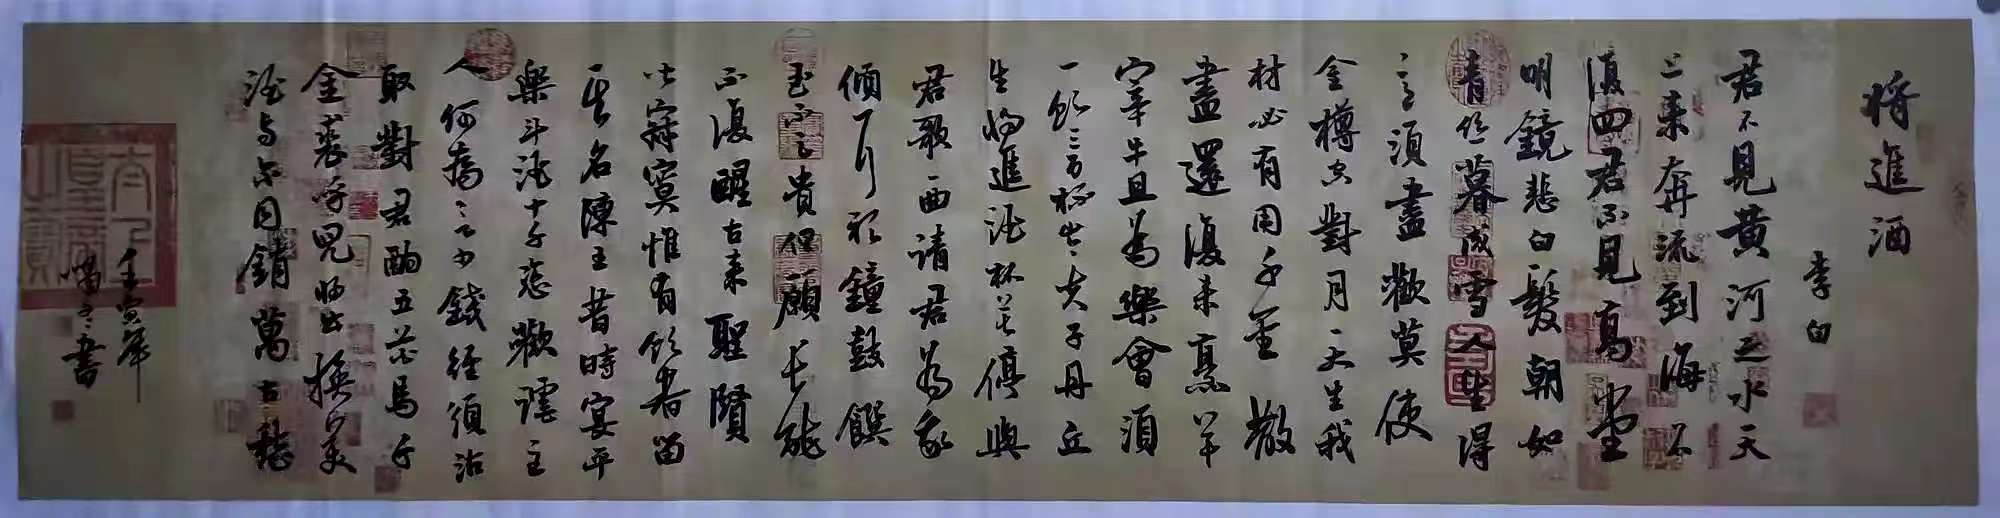 將進酒
李白
君不見黃河之水天
上来奔流到海不
復回君不見高堂
明鏡悲白髮朝如
青絲暮成雪人生得
意須盡歡莫使
金樽空對月天生我
材必有用千金散
盡還復来烹羊
宰牛且為樂會須
一飲三百杯岑夫子丹丘
生將進酒杯莫停與
君歌一曲請君為我
傾耳聽鐘鼓饌
玉不足貴但願長醉
不復醒古来聖賢
皆寂寞惟有飲者留
其名陳王昔時宴平
樂斗酒十千恣歡謔主
人何為言少錢徑須沽
取對君酌五花馬千
金裘呼兒將出換美
酒與爾同銷萬古愁
壬寅年
書